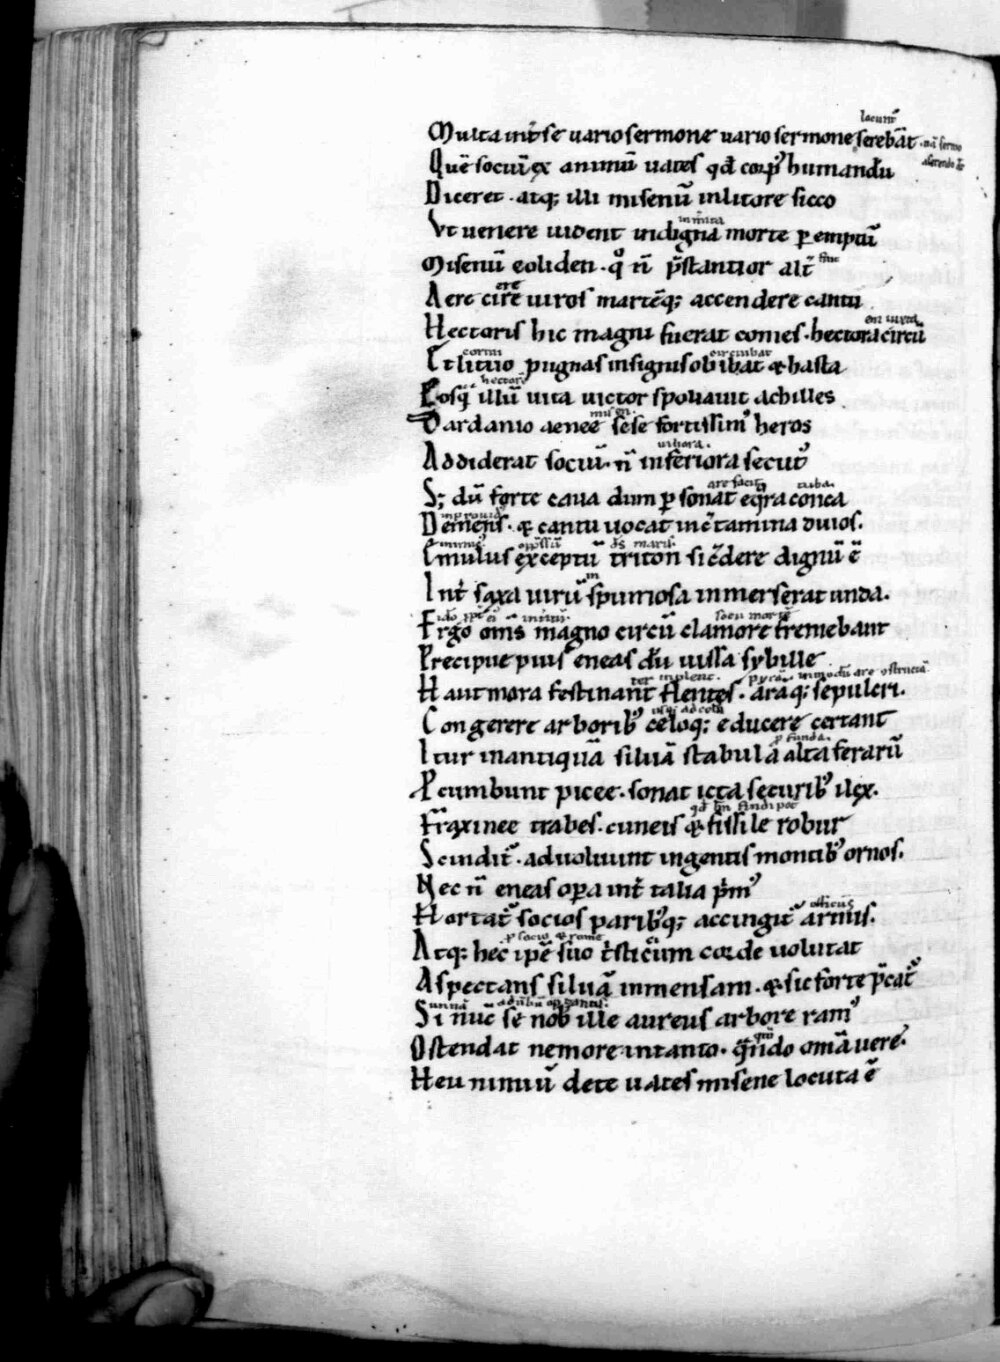 locunt᷑
Multa int᷑ se uario sermone uario sermone serebāt
Quē sociū ex animū uates qd̄ corp᷒ humandū
Diceret · atq; illi misenū in litore sicco
Vt uenere uident indigna morte ꝑ emptū
Misenū eoliden · qͦ n̄ p̄stantior alt᷑
ere
Aere cire uiros martēq; accendere cantu
Hectoris hic magni fuerat comes · hectora circū
cornu circuibat
Et lituo pugnas insignis obibat & hasta
hectorē
Postq̄ illū uita uictor spoliauit achilles
Dardanio aenee sese fortissim᷒ heros
uiliora ·
Addiderat sociū · n̄ inferiora secut᷒
tuba ·
S; dū forte caua dum ꝑ sonat eq̄ra conca
Demens · & cantu uocat in c̄tamina diuos ·
Emulus exceptū triton si c̄dere dignū ē
Int᷑ saxa uirū spumosa inmerserat unda ·
Ergo om̄s magno circū clamore fremebant
Precipue pius eneas dū iussa sybille
Haut mora festinant flentes · araq; sepulcri ·
Congerere arborib᷒ celoq; educere certant
ꝓ funda ·
Itur in antiquā siluā stabula alta ferarū
Pcumbunt picee · sonat icta securib᷒ ilex ·
Fraxinee trabes · cuneis & fissile robur
Scindit᷑ · aduoluunt ingentis montib᷒ ornos ·
Nec n̄ eneas oꝑa int᷑ talia p̄m᷒
Hortat᷑ socios paribq; accingit᷑ armis ·
Atq; hec ipē suo t᷑sti cum corde uolutat
Aspectans siluā inmensam · & sic forte p̄cat᷑
Si nūc se nob᷒ ille aureus arbore ram᷒
Ostendat nemore in tanto · q̄ndo om̄ia uere ·
Heu nimiū de te uates misene locuta ē